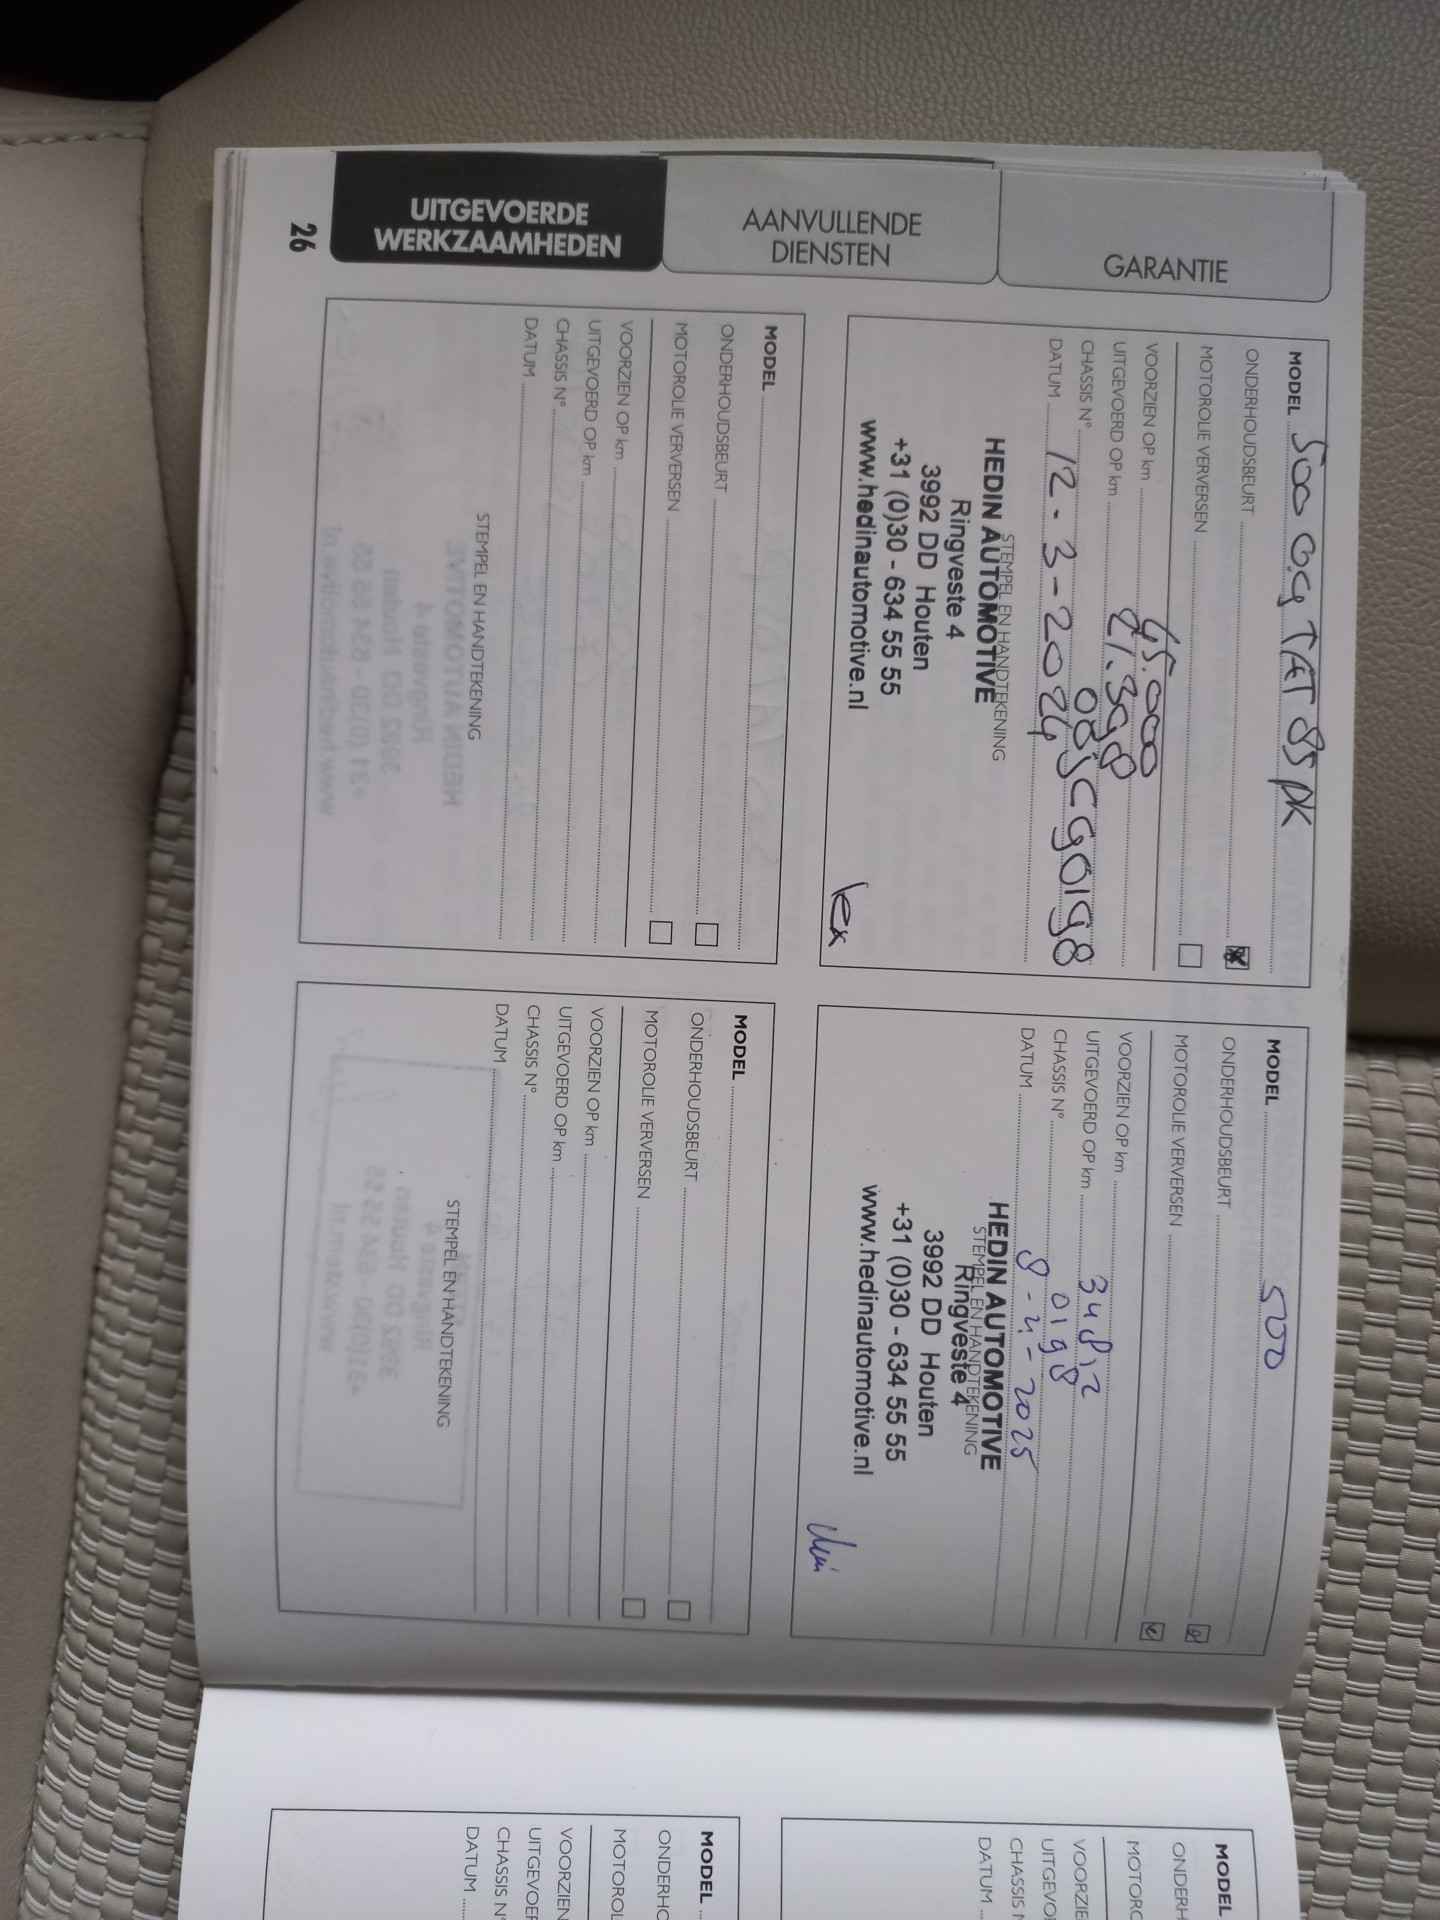 UITGEVOERDE
WERKZAAMHEDEN
AANVULLENDE
DIENSTEN
GARANTIE
26
MODEL 500 0.9 TAT 85 pk
ONDERHOUDSBEURT
MOTOROLIE VERVERSEN
VOORZIEN OP km 45.000
UITGEVOERD OP km 21.398
CHASSIS N° 08JC90198
DATUM 12-3-2024
STEMPEL EN HANDTEKENING
HEDIN AUTOMOTIVE
Ringveste 4
3992 DD Houten
+31 (0)30 - 634 55 55
www.hedinautomotive.nl
MODEL 500
ONDERHOUDSBEURT
MOTOROLIE VERVERSEN
VOORZIEN OP km
UITGEVOERD OP km 34812
CHASSIS N° 0198
DATUM 8-4-2025
STEMPEL EN HANDTEKENING
HEDIN AUTOMOTIVE
Ringveste 4
3992 DD Houten
+31 (0)30 - 634 55 55
www.hedinautomotive.nl
MODEL
ONDERHOUDSBEURT
MOTOROLIE VERVERSEN
VOORZIEN OP km
UITGEVOERD OP km
CHASSIS N°
DATUM
STEMPEL EN HANDTEKENING
MODEL
ONDERHOUDSBEURT
MOTOROLIE VERVERSEN
VOORZIEN OP km
UITGEVOERD OP km
CHASSIS N°
DATUM
STEMPEL EN HANDTEKENING
MODEL
ONDERH
MOTORO
VOORZIE
UITGEVO
CHASSIS N
DATUM
MODEL
ONDERHO
MOTOROL
VOORZIEN
UITGEVOER
CHASSIS N°
DATUM